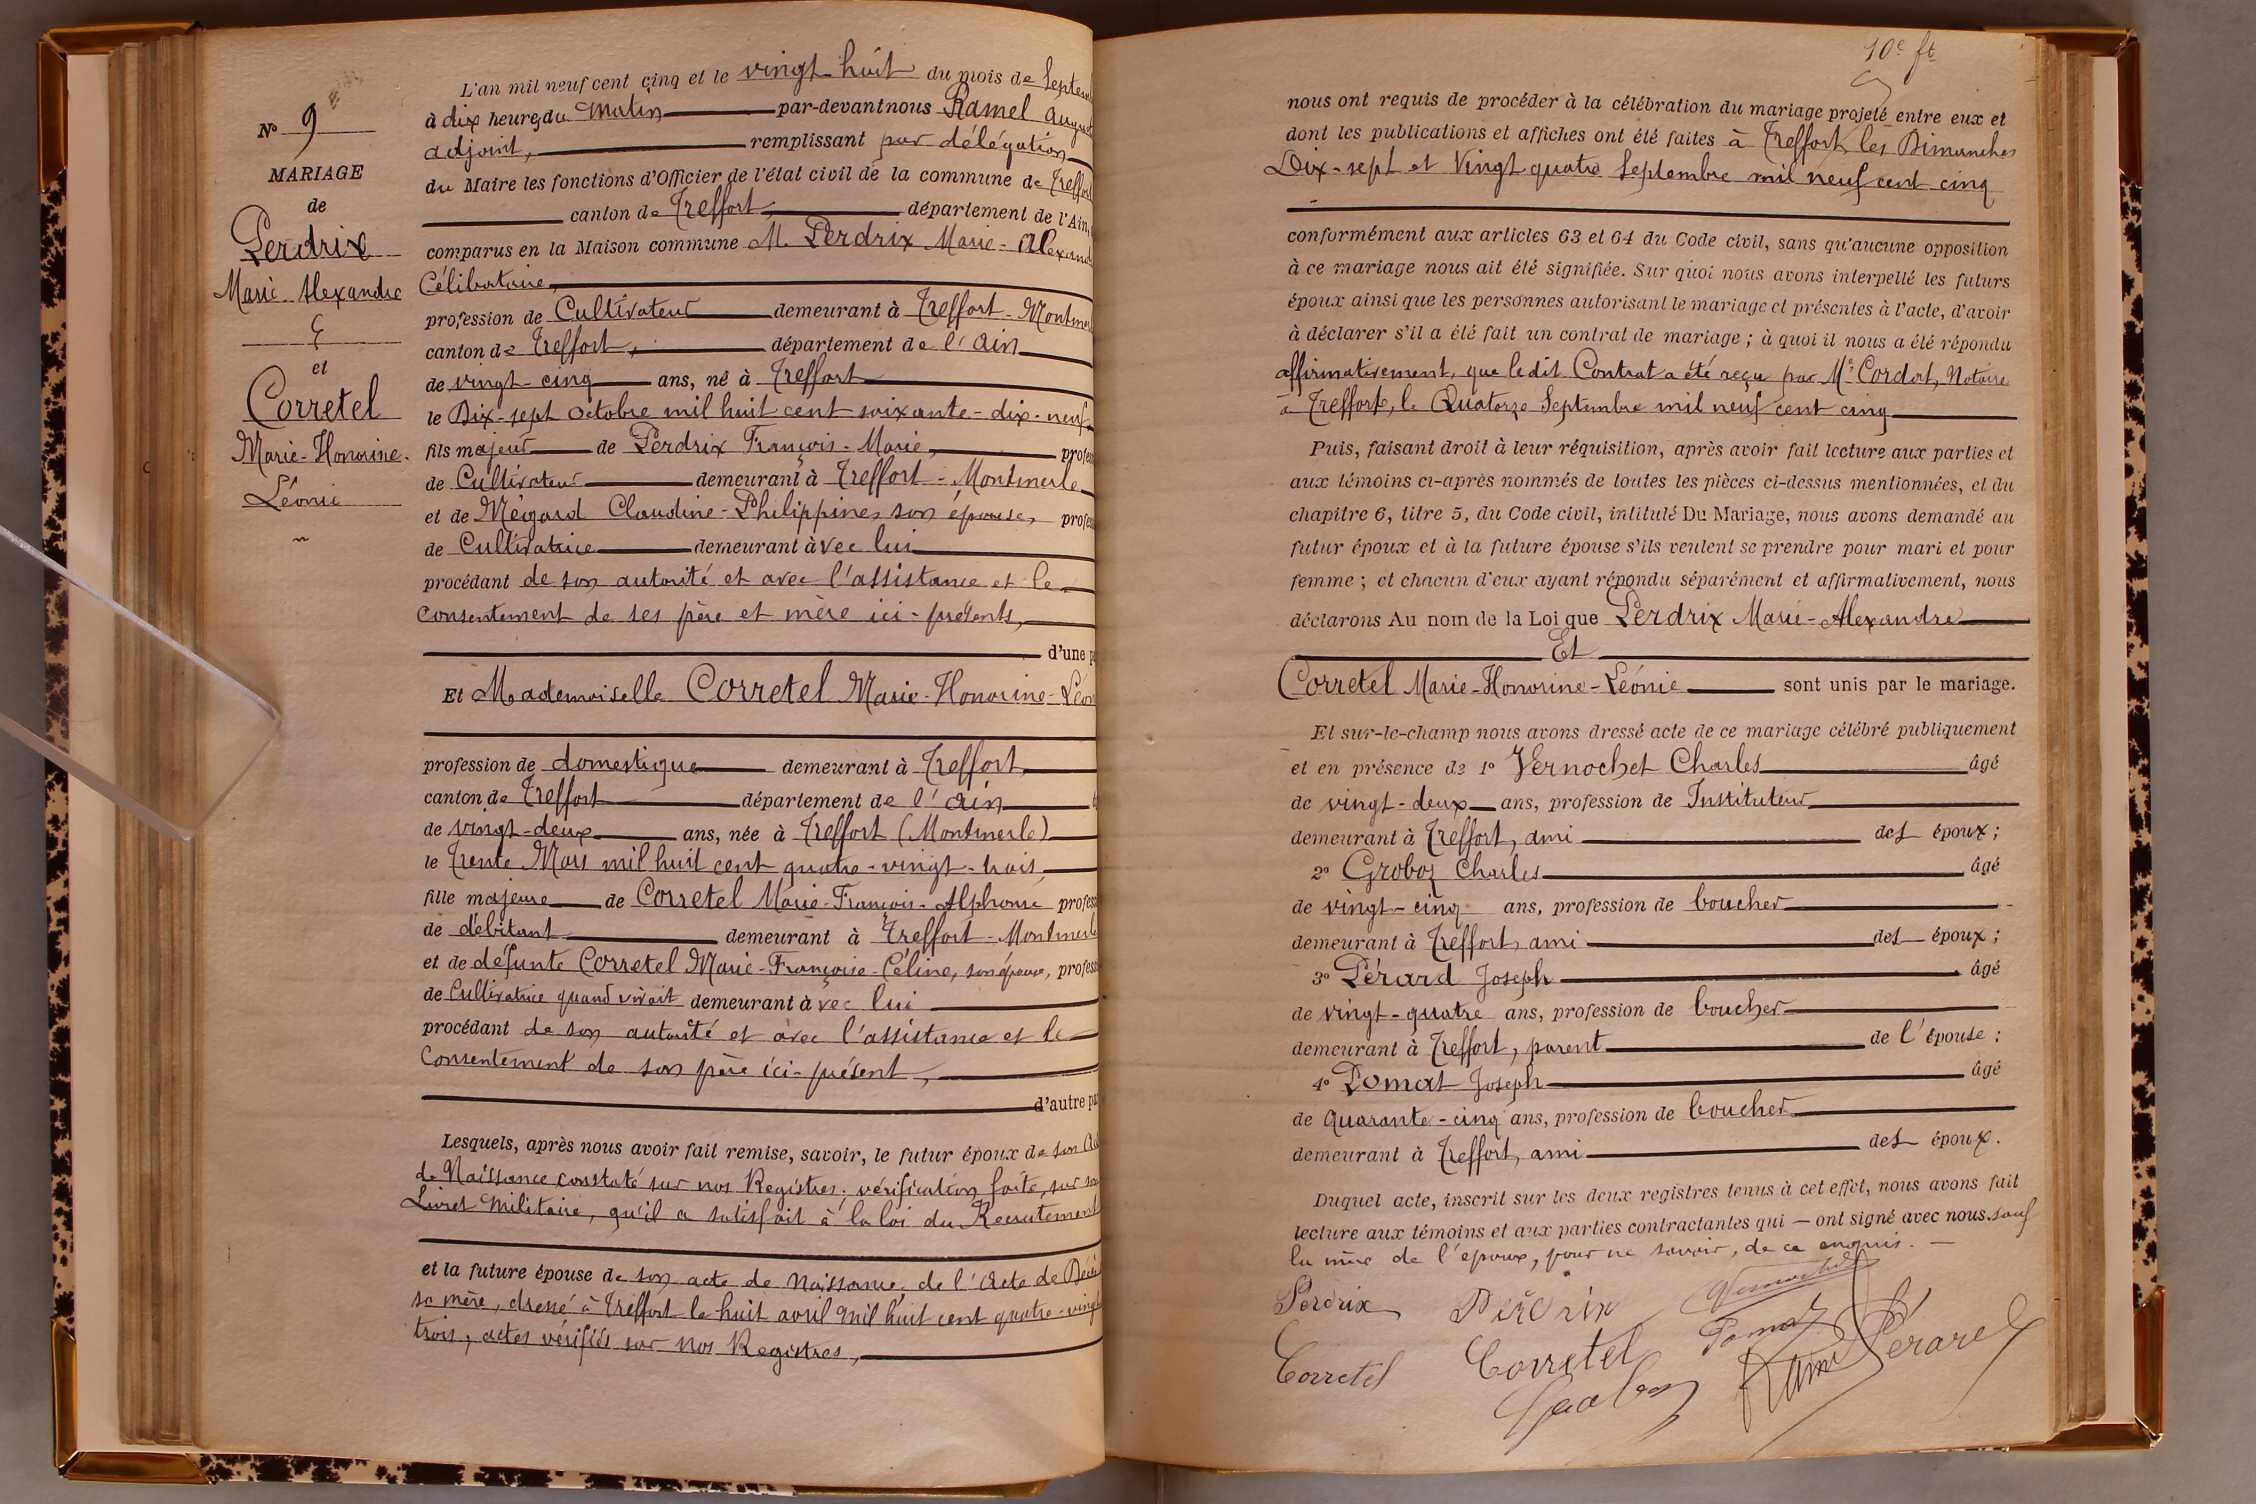 N° 9
MARIAGE
de
Perdrix
Marie-Alexandre
&
et
Corretel
Marie-Honorine-
Léonie
L'an mil neuf cent cinq et le vingt-huit du mois de Septem
à dix heures du Matin par-devant nous Ramel August
adjoint, remplissant par délégation
du Maire les fonctions d'Officier de l'état civil de la commune de Treffort
canton de Treffort, département de l'Ain,
comparus en la Maison commune M. Perdrix Marie-Alexand
Célibataire,
profession de Cultivateur demeurant à Treffort-Montmer
canton de Treffort, département de l'Ain
de vingt-cinq ans, né à Treffort
le Dix-sept Octobre mil huit cent soixante-dix-neuf
fils majeur de Perdrix François-Marie, profes
de Cultivateur demeurant à Treffort-Montmerle
et de Mégard Claudine-Philippine, son épouse, profes
de Cultivatrice demeurant àvec lui
procédant de son autorité et avec l'assistance et le
Consentement de ses père et mère ici-présents,
d'une p
Et Mademoiselle Corretel Marie-Honorine-Léon
profession de domestique demeurant à Treffort
canton de Treffort département de l'Ain
de vingt-deux ans, née à Treffort (Montmerle)
le trente Mars mil huit cent quatre-vingt-trois,
fille majeure de Corretel Marie-François-Alphonse profess
de débitant demeurant à Treffort-Montmerle
et de défunte Corretel Marie-Françoise-Céline, son épouse, profess
de Cultivatrice quand vivait demeurant àvec lui
procédant de son autorité et avec l'assistance et le
Consentement de son père ici-présent,
d'autre pa
Lesquels, après nous avoir fait remise, savoir, le futur époux de son Ac
de Naissance constaté sur nos Registres; vérification faite, sur son
Livret Militaire, qu'il a satisfait à la loi du Recrutement
et la future épouse de son acte de Naissance, de l'Acte de Décès
sa mère, dressé à Treffort le huit avril mil huit cent quatre-vingt
trois, actes vérifiés sur nos Registres,
10e ft
nous ont requis de procéder à la célébration du mariage projeté entre eux et
dont les publications et affiches ont été faites à Treffort, les Dimanches
Dix-sept et Vingt quatre Septembre mil neuf cent cinq
conformément aux articles 63 et 64 du Code civil, sans qu'aucune opposition
à ce mariage nous ait été signifiée. Sur quoi nous avons interpellé les futurs
époux ainsi que les personnes autorisant le mariage et présentes à l'acte, d'avoir
à déclarer s'il a été fait un contrat de mariage ; à quoi il nous a été répondu
affirmativement, que le dit Contrat a été reçu par Me Cordort, Notaire
à Treffort, le Quatorze Septembre mil neuf cent cinq
Puis, faisant droit à leur réquisition, après avoir fait lecture aux parties et
aux témoins ci-après nommés de toutes les pièces ci-dessus mentionnées, et du
chapitre 6, titre 5, du Code civil, intitulé Du Mariage, nous avons demandé au
futur époux et à la future épouse s'ils veulent se prendre pour mari et pour
femme ; et chacun d'eux ayant répondu séparément et affirmativement, nous
déclarons Au nom de la Loi que Perdrix Marie-Alexandre
Et
Corretel Marie-Honorine-Léonie sont unis par le mariage.
Et sur-le-champ nous avons dressé acte de ce mariage célébré publiquement
et en présence de 1° Vernochet Charles âgé
de vingt-deux ans, profession de Instituteur
demeurant à Treffort, ami des époux ;
2° Groboz Charles âgé
de vingt-cinq ans, profession de boucher
demeurant à Treffort, ami des époux ;
3° Pérard Joseph âgé
de vingt-quatre ans, profession de boucher
demeurant à Treffort, parent de l'épouse ;
4° Pomat Joseph âgé
de quarante-cinq ans, profession de boucher
demeurant à Treffort, ami des époux.
Duquel acte, inscrit sur les deux registres tenus à cet effet, nous avons fait
lecture aux témoins et aux parties contractantes qui — ont signé avec nous. sauf
la mère de l'époux, pour ne savoir, de ce enquis. —
Perdrix Perdrix
Pomat
Corretel Corretel Pérard